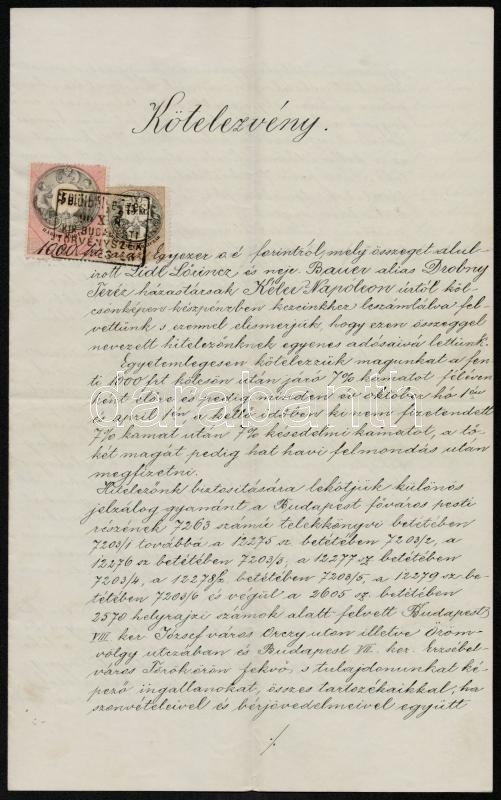 Kötelezvény.
BUDAPESTI
TÖRVÉNYSZÉK
1000 frt azaz Egyezer o é forintról, mely összeget alul-
irott Lidl Lőrincz és neje Bauer alias Drobny
Teréz házastársak Keler Napoleon úrtól köl-
csönképen készpénzben kezeinkhez leszámlálva fel-
vettünk s ezennel elismerjük, hogy ezen összeggel
nevezett hitelezőnknek egyenes adósaivá lettünk.
Egyetemlegesen kötelezzük magunkat a fen-
ti 1000 frt kölcsön után járó 7% kamatot féléven-
ként előre és pedig minden év október hó 1én
és april 1én a kellő időben ki nem fizetendett
7% kamat után 7% késedelmi kamatot, a tő-
két magát pedig hat havi felmondás után
megfizetni.
Hitelezőnk biztosítására lekötjük különös
jelzálog gyanánt a Budapest főváros pesti
részének 7263 számú telekkönyvi betétében
7203/1 továbbá a 12275 sz betétében 7203/2, a
12276 sz betétében 7203/3, a 12277 sz betétében
7203/4, a 12278/2 betétében 7203/5, a 12279 sz be-
tétében 7203/6 és végül a 2605 sz. betétében
2570 helyrajzi számok alatt felvett Budapest
VIII. ker József város Orczy uton illetve Öröm-
völgy utczában és Budapest VII. ker. Erzsébet-
város Törökőrön fekvő, s tulajdonunkat ké-
pező ingatlanokat, összes tartozékaikkal, ha-
szonvételeivel és bérjövedelmeivel együtt
./.
darabanth